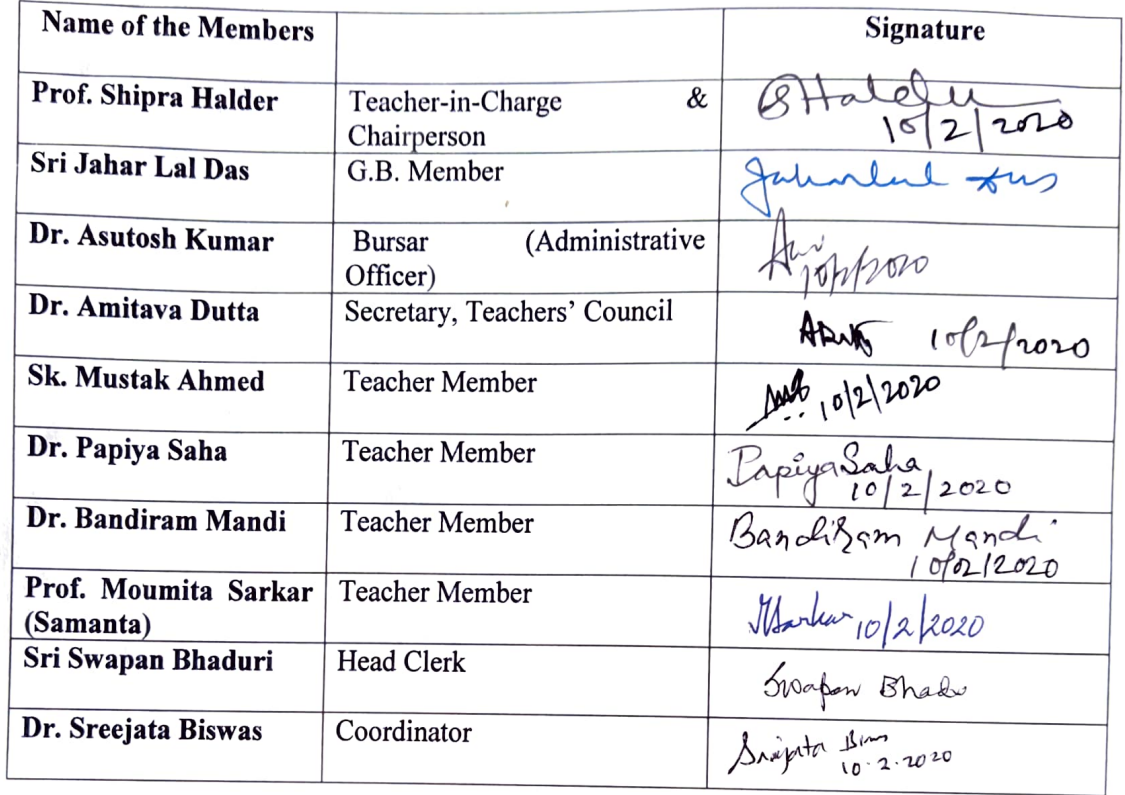 Name of the Members Signature
Prof. Shipra Halder Teacher-in-Charge & SHalder
Chairperson 10/2/2020
Sri Jahar Lal Das G.B. Member Jaharlal Das
Dr. Asutosh Kumar Bursar (Administrative
Officer) 10/2/2020
Dr. Amitava Dutta Secretary, Teachers' Council
10/2/2020
Sk. Mustak Ahmed Teacher Member 10/2/2020
Dr. Papiya Saha Teacher Member Papiya Saha
10/2/2020
Dr. Bandiram Mandi Teacher Member Bandiram Mandi
10/02/2020
Prof. Moumita Sarkar Teacher Member MSarkar 10/2/2020
(Samanta)
Sri Swapan Bhaduri Head Clerk Swapan Bhadu
Dr. Sreejata Biswas Coordinator
10.2.2020